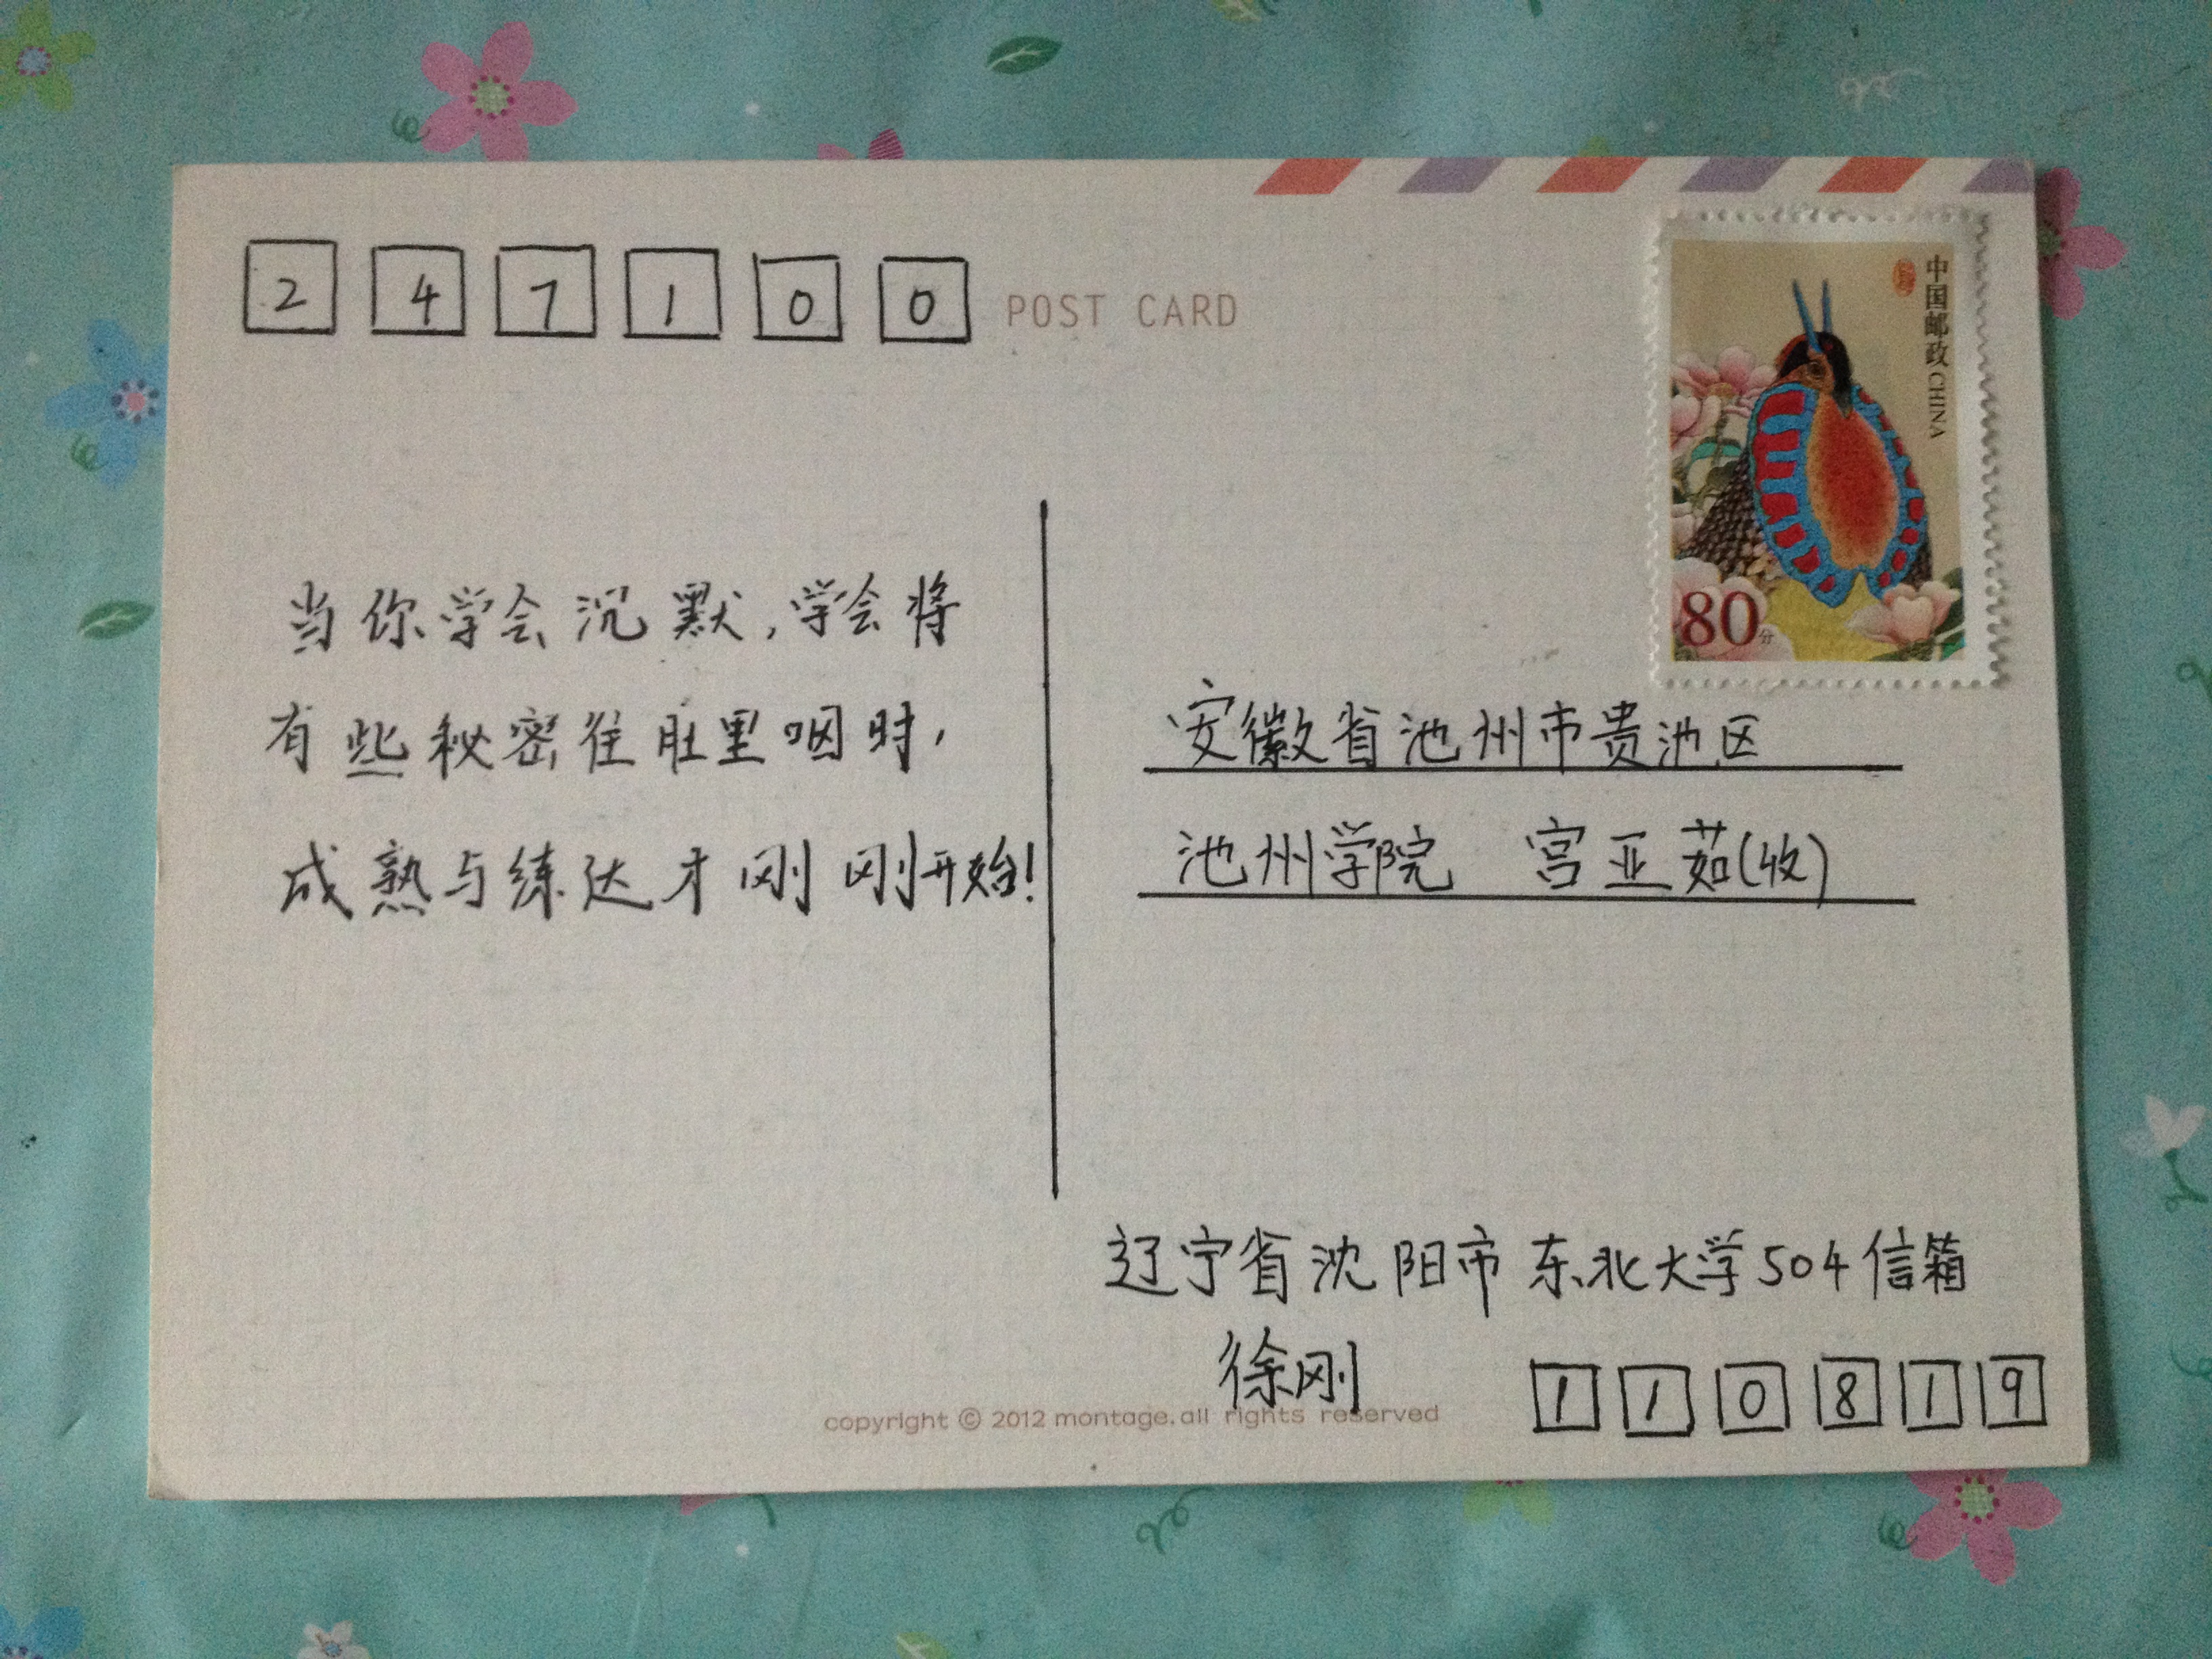 247100
POST CARD
中国邮政 CHINA
80分
当你学会沉默，学会将
有些秘密往肚里咽时，
成熟与练达才刚刚开始！
安徽省池州市贵池区
池州学院 宫亚茹（收）
辽宁省沈阳市东北大学504信箱
徐刚
110819
copyright © 2012 montage. all rights reserved